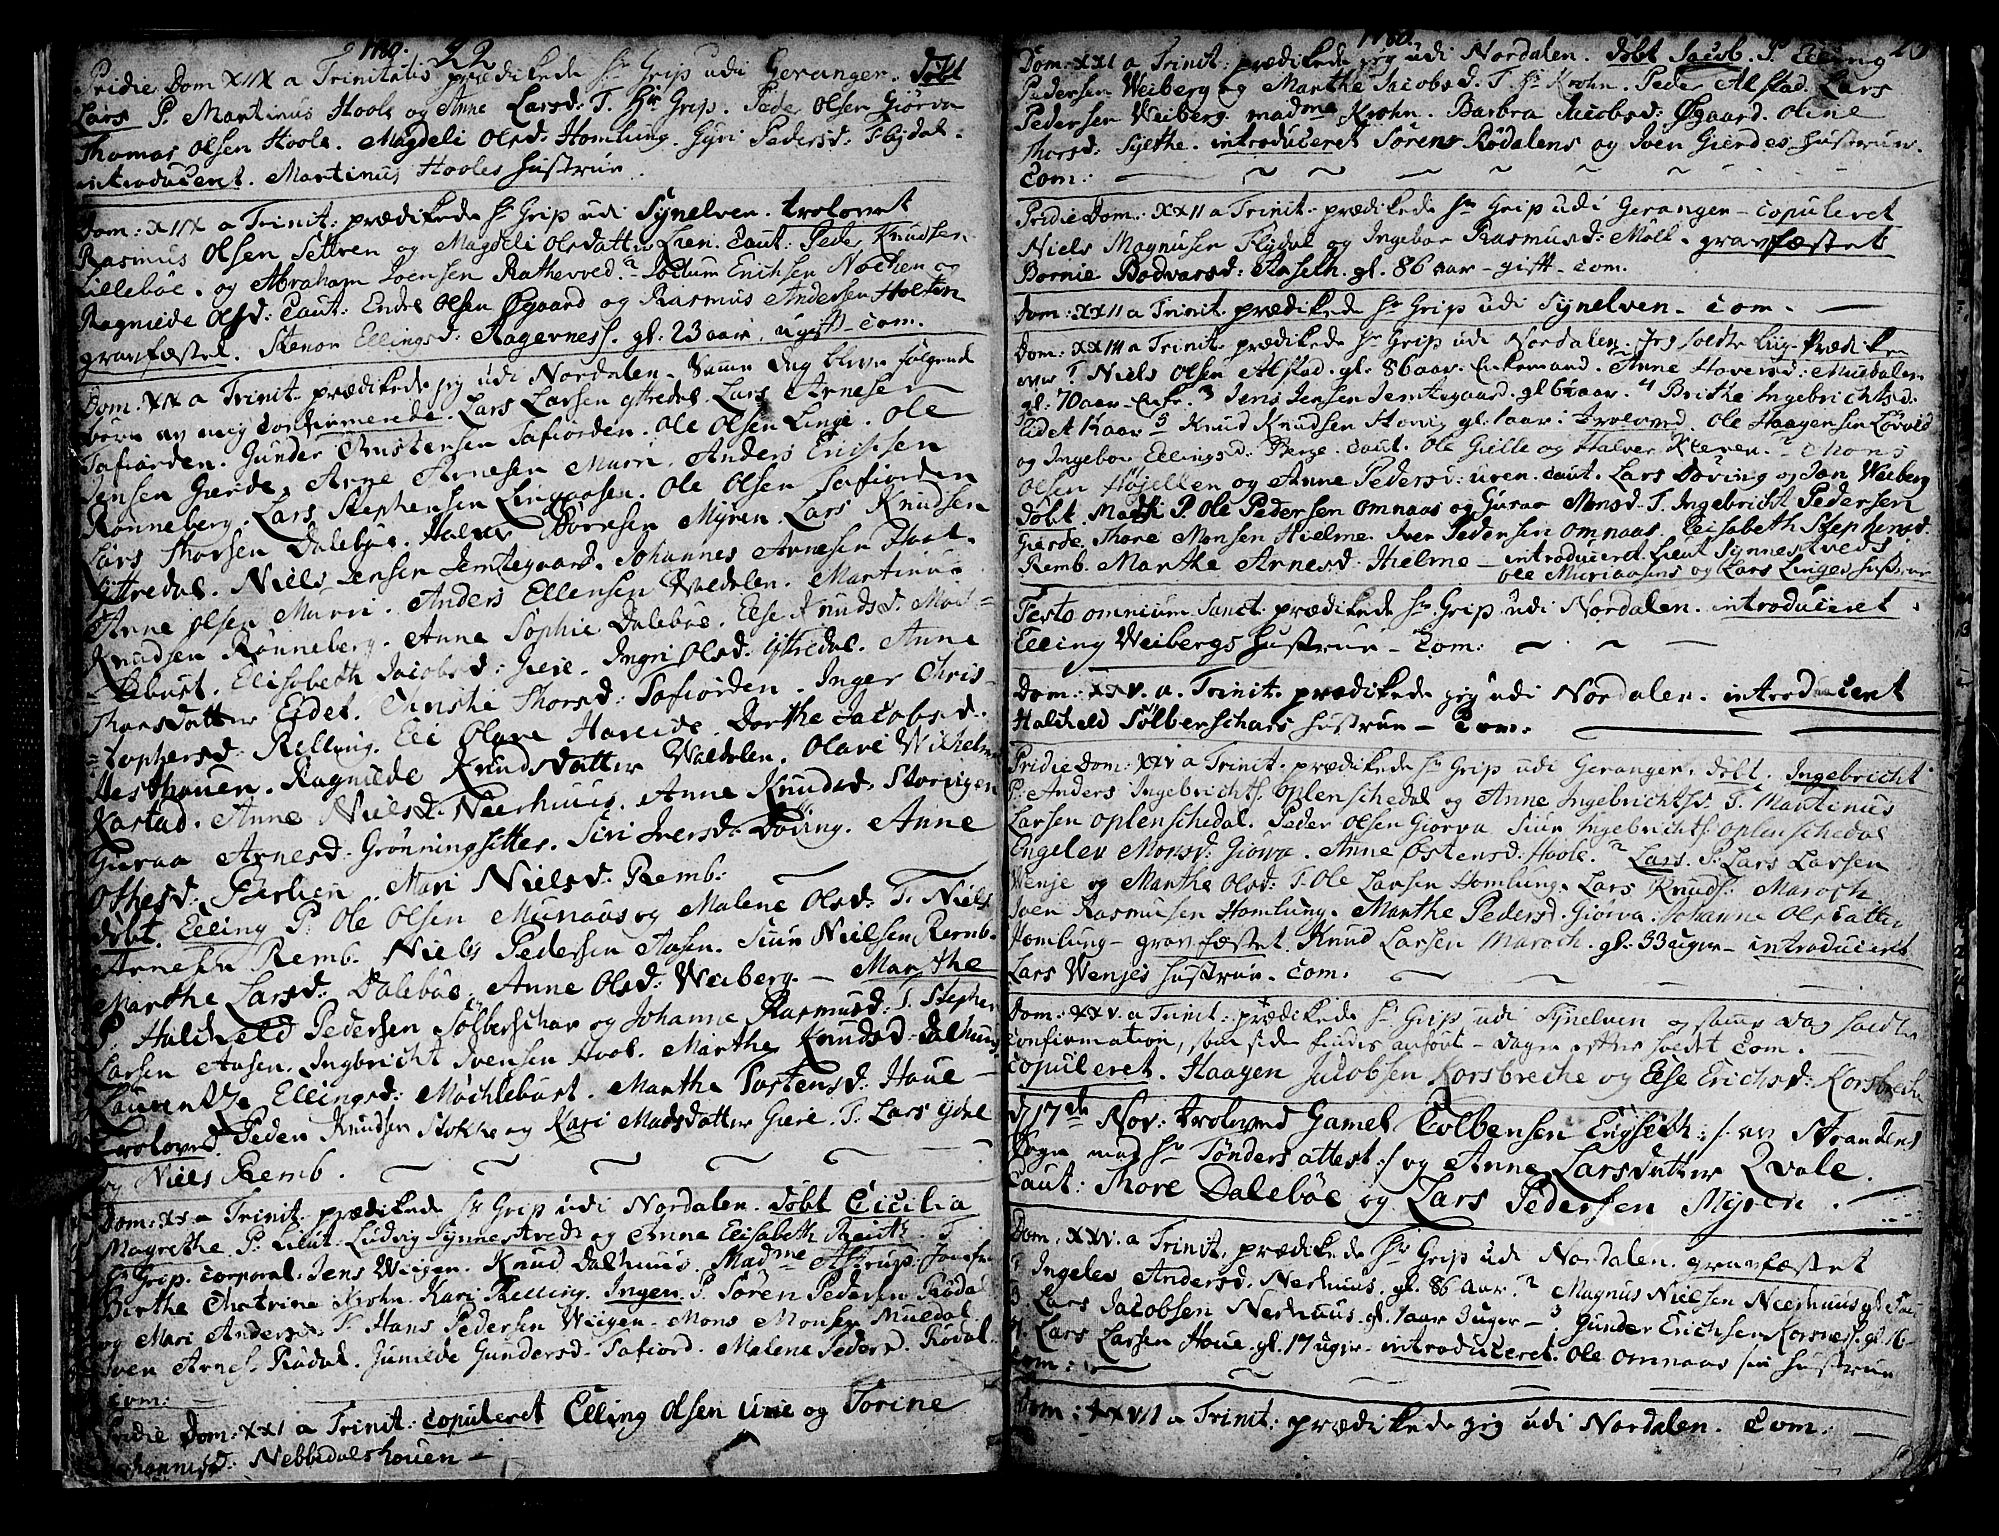 1780. 22
Pridie Dom XIIX a Trinitatis prædikede Hr Grip udi Geranger. Døbt
Lars P. Martinus Hoole og Anne Larsd: T. Hr Grip. Peder Olsen Giörva
Thomas Olsen Hoole. Magdeli Olsd: Homlung. Gyri Pedersd: Flydal.
introduceret. Martinus Hooles hustrue.
Dom: XIX a Trinit: prædikede Hr Grip udi Synelven. trolovet
Rasmus Olsen Settren og Magdeli Olsdatter Lien. Caut: Peder Knudsen
Lillebøe. og Abraham Joensen Ratherved. Jodum Erichsen Nochen og
Ragnilde Olsd: Caut: Endre Olsen Øgaard og Rasmus Andersen Holten
gravfæstet. Stenor Ellingsd: Aagernes. gl: 23 aar, ugift - Com.
Dom: XX a Trinit. prædikede jeg udi Nordalen. Samme Dag bleve følgende
børn av mig Confirmerede. Lars Larsen Yttredal. Lars Arnesen
Tafiorden. Gunder Christensen Tafiorden. Ole Olsen Linge. Ole
Jensen Gierde. Arne Arnesen Murri. Anders Erichsen
Rønneberg. Lars Stephensen Lingaasen. Ole Olsen Tafiorden
Lars Thorsen Dalebøe. Halvor Siversen Myren. Lars Knudsen
Yttredal. Niels Jensen Jemtegaard. Johannes Arnesen Hool.
Anne Olsen Murri. Anders Ellensen Waldalen. Martinus
Knudsen Rønneberg. Anne Sophie Dalebøe. Else Knudsd: Moch=
=lebust. Elisabeth Jacobsd: Giere. Ingri Olsd. Yttredal. Anne
Thorsdatter Eidet. Thorsd: Tafiorden. Inger Chris=
=tophersd: Relling. Eli Olave Hareide. Dorthe Jacobsd.
Hesthouen. Ragnilde Knudsdatter Waldalen. Olave Wilhelm
Kastad. Anne Nielsd. Neerhuus. Anne Knudsd. Storvigen
Guraa Arnesd: Grønningsitter. Siri Iversd. Døving. Anne
Othesd. Ferlien. Mari Nielsd: Remb:
døbt. Elling P. Ole Olsen Muriaas og Malene Olsd: T. Niels
Arnesen Remb. Niels Pedersen Aasen. Siur Nielsen Remb.
Marthe Larsd: Dalebøe. Anne Olsd: Weiberg. - Marthe
P. Halcheld Pedersen Sølberschar og Johanne Rasmusd: T. Stephen
Larsen Aasen. Ingbricht Ivensen Hool. Marthe Knudsd: Dalhuus
Laurentze Ellingsd: Møchlebust. Marthe Tostensd: Houe -
Trolovet Peder Knudsen Stokke og Kari Madsdatter Giere. T. Lars Ydre
og Niels Remb.
Dom: XX a Trinit. prædikede Hr Grip udi Nordalen. døbt Cicilia
Magrethe P. Lieut. Ludvig Synnestvedt og Anne Elisabeth T.
Hr Grip. Corporal Jens Weigen. Knud Dalhuus. Madme Astrup.
Birthe Chatrine Krohn. Kari Relling. Inger P. Søren Pedersen Rødal
og Mari Andersd. T. Hans Pedersen Weigen. Mons Monsen Muedal.
Iven Arnes. Rødal. Junilde Gundersd. Tafiord. Malene Pedersd. Rødal.
Com:
Pridie Dom: XXI a Trinit: copuleret Elling Olsen Urne og Torine
Johannesd: Nebbedalshouen -
1780. 23
Dom: XXI a Trinit: prædikede jeg udi Nordalen. døbt Jacob. P. Elling
Pedersen Weiberg og Marthe Jacobsd. T. Hr Krohn. Peder Alstad. Lars
Pedersen Weiberg. madme Krohn. Barbra Jacobsd: Øgaard. Oline
Thorsd: Sylthe. introduceret Sørens Rødalens og Iven Gierdes hustruer.
Com:
Pridie Dom: XXII a Trinit: prædikede Hr Grip udi Geranger - copuleret
Niels Magnusen Flydal og Ingebor Rasmusd: Moll - gravfæstet
Bornie Bodvarsd: Anselh. gl. 86 aar - gift - com.
Dom: XXII a Trinit: prædikede Hr Grip udi Synelven - Com -
Dom: XXIII a Trinit: prædikede Hr Grip udi Nordalen. Jeg holdte Liig Prædiken
over 1 Niels Olsen Alstad. gl. 86 aar. Enkemand. 2 Anne Hoversd: Muldalen
gl: 70 aar - Enke. 3 Jens Jensen Jemtegaard. gl 62 aar. 4 Brithe Ingebrichtsd:
Eidet 12 aar 5 Knud Knudsen Honig gl. 1 aar: trolovet. Ole Haagensen Løvold
og Ingebor Ellingsd. Berge. Caut. Ole Gielle og Halver Kleven. 2 Mons
Olsen Høyellen og Anne Pedersd: Uren. Caut. Lars Døving og Jon Weiberg
døbt. Mads P. Ole Pedersen Omnaas og Guraa Monsd. T. Ingebricht Pedersen
Gierde. Thore Monsen Hielme. Iver Pedersen Omnaas. Elisabeth Stephensd.
Remb. Marthe Arnesd. Hielme - introduceret Lieut Synnestveds
Ole Muriaasens og Lars Linges hustruer
Festo omnium Sanct: prædikede Hr Grip udi Nordalen. introduceret
Elling Weibergs hustrue - Com:
Dom: XXV. a. Trinit. prædikede jeg udi Nordalen. introduceret
Halcheld Sølberschars hustrue - Com.
Pridie Dom: XIV a Trinit. prædikede Hr Grip udi Geranger. døbt. Ingebricht
P. Anders Ingebrichts. Oplenschedal og Anne Ingebrichtsd. T. Martinus
Larsen Oplenschedal. Peder Olsen Giorva Siur Ingebrichts. Oplenschedal
Engelev Monsd: Giorva. Anne Østensd: Hoole. 2 Lars. P. Lars Larsen
Wenje og Marthe Olsd: T. Ole Larsen Homlung. Lars Knuds: Maroch
Iven Rasmusen Homlung. Marthe Pedersd. Giørva. Johanne Olsdatter
Homlung - gravfæstet. Knud Larsen Maroch. gl. 33 uger - introduceret
Lars Wenjes hustrue - Com.
Dom: XXV. a Trinit: prædikede Hr Grip udi Synelven og samme dag holdte
Confirmation, som siden findes anført - dagen efter holdet Com.
Copuleret. Haagen Jacobsen Korsbreche og Else Erichsd: Korsbreche
d 17de Nov: trolovet Gamel Colbensen Engseth :/ av Strandens
Sogn med Hr Tønders attest :/ og Anne Larsdatter Qvale.
Caut: Thore Dalebøe og Lars Pedersen Myren.
Dom. XXV. a Trinit. prædikede Hr Grip udi Nordalen. gravfæstet
1 Ingelev Andersd. Nerhuus, gl. 86 Aar. 2 Magnus Nielsen Neerhuus gl.
3 Lars Jacobsen Nerhuus gl. 1 aar 3 uger - Gunder Erichsen Korsnes. gl. 16
4. Lars Larsen Houe - gl. 17 uger. introduceret. Ole Omnaasen hustrue
Com:
Dom: XXVII a Trinit: prædikede jeg udi Nordalen. Com.